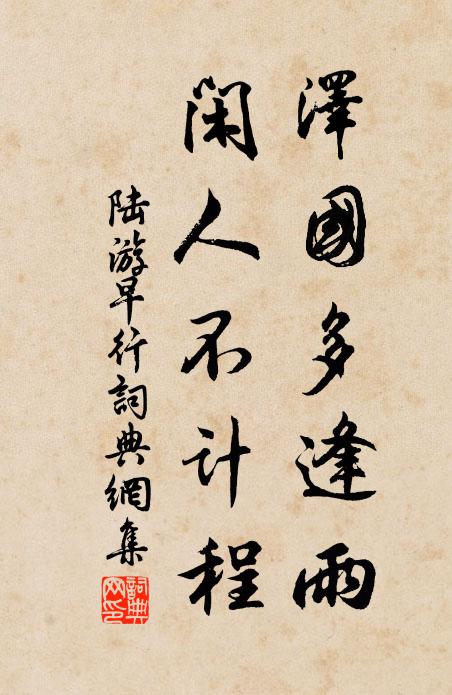 澤國多逢雨
閑人不计程
陆游早行詞典網集
詞典
网印